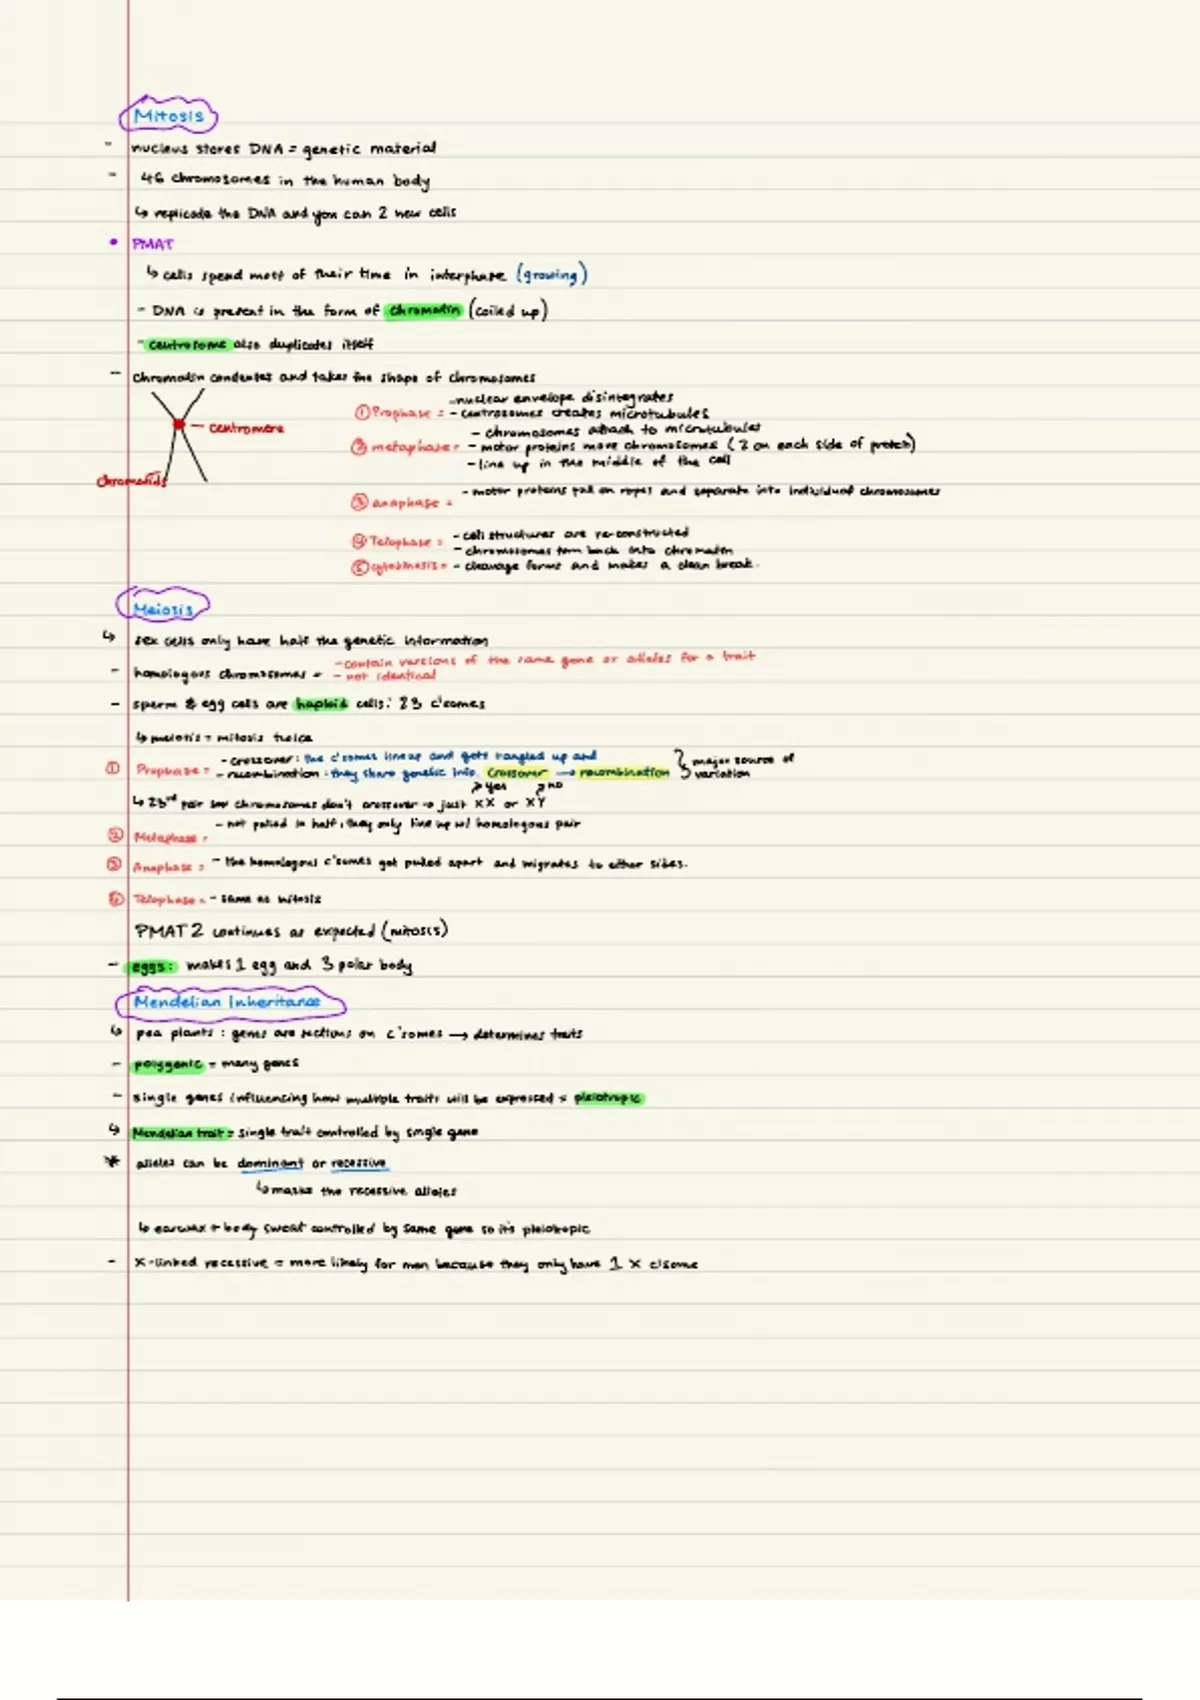 Mitosis
- nucleus stores DNA = genetic material
- 46 chromosomes in the human body
↳ replicade the DNA and you can 2 new cells
• PMAT
↳ cells spend most of their time in interphase (growing)
- DNA is present in the form of chromatin (coiled up)
- centrosome also duplicates itself
- chromatin condenses and takes the shape of chromosomes
- nuclear envelope disintegrates
① Prophase = - centrosomes creates microtubules
- centromere
- chromosomes attach to microtubules
② metaphase = - motor proteins move chromosomes (2 on each side of protein)
- line up in the middle of the cell
chromatids
- motor proteins pull on ropes and separate into individual chromosomes
③ anaphase =
④ Telophase = - cell structures are re-constructed
- chromosomes turn back into chromatin
⑤ cytokinesis = - cleavage forms and makes a clean break.
Meiosis
↳ sex cells only have half the genetic information
- contain versions of the same gene or alleles for a trait
- homologous chromosomes = - not identical
- sperm & egg cells are haploid cells: 23 c'somes
↳ meiosis = mitosis twice
- crossover: the c'somes lineup and gets tangled up and
① Prophase = - recombination: they share genetic info. crossover → recombination } major source of variation
yes no
↳ 23rd pair sex chromosomes don't crossover → just XX or XY
- not pulled in half, they only line up w/ homologous pair
② Metaphase =
③ Anaphase = - the homologous c'somes get pulled apart and migrates to either sides.
④ Telophase = - same as mitosis
PMAT 2 continues as expected (mitosis)
- eggs: makes 1 egg and 3 polar body
Mendelian Inheritance
↳ pea plants: genes are sections on c'somes → determines traits
- polygenic = many genes
- single genes influencing how multiple traits will be expressed = pleiotropic
↳ Mendelian trait = single trait controlled by single gene
* alleles can be dominant or recessive
↳ masks the recessive alleles
↳ earwax + body sweat controlled by same gene so it's pleiotropic
- X-linked recessive = more likely for men because they only have 1 X c'some